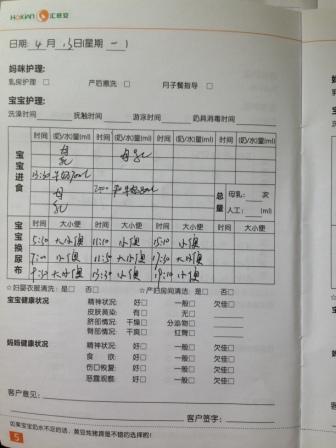 HOXIAN 汇喜安
日期: 4 月 13 日(星期 一 )
妈咪护理:
乳房护理 □ 产后熏洗 □ 月子餐指导 □
宝宝护理:
洗澡时间 抚触时间 游泳时间 奶具消毒时间
宝宝进食
时间 (奶/水)量(ml) 时间 (奶/水)量(ml) 时间 (奶/水)量(ml) 时间 (奶/水)量(ml)
母乳 母乳
13:30 牛奶
母乳
总量 母乳: 次
人工: (ml)
宝宝换尿布
时间 大小便 时间 大小便 时间 大小便 时间 大小便
5:10 大小便 11:10 小便 15:10 小便
7:00 小便 11:50 小便 17:30 大小便
9:30 大小便 13:30 小便 19:10 小便
☆妇婴衣服清洗: 是□ 否□ ☆产妇房间清洁 是□ 否□
宝宝健康状况 精神状况: 好□ 一般□ 欠佳□
皮肤黄染: 有□ 无□
脐部情况: 干燥□ 分泌物□
臀部情况: 干爽□ 红臀□
妈妈健康状况 精神状况: 好□ 一般□ 欠佳□
食 欲: 好□ 一般□ 欠佳□
伤口恢复: 好□ 一般□ 欠佳□
恶露观察: 好□ 一般□ 欠佳□
客户意见:
客户签字:
5
如果宝宝奶水不足的话，黄豆炖猪蹄是不错的选择哟!